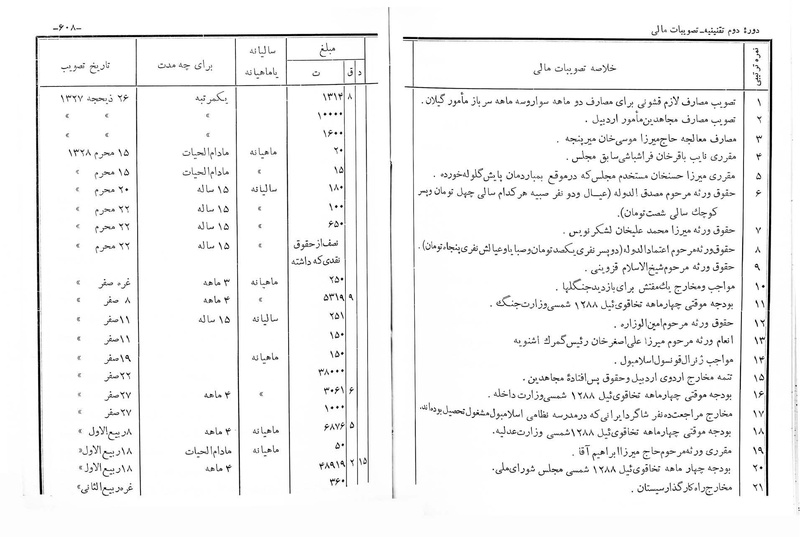 دورۀ دوم تقنینیه ـ تصویبات مالی
نمره ترتیبی
خلاصه تصویبات مالی
۱ تصویب مصارف لازم قشونی برای مصارف دو ماهه سوار و سه ماهه سرباز مأمور گیلان .
۲ تصویب مصارف مجاهدین مأمور اردبیل .
۳ مصارف معالجه حاج میرزا موسی خان میرپنجه .
۴ مقرری نایب باقرخان فراشباشی سابق مجلس .
۵ مقرری میرزا حسنخان مستخدم مجلس که در موقع بمباردمان پایش گلوله خورده .
۶ حقوق ورثه مرحوم مصدق الدوله (عیال و دو نفر صبیه هر کدام سالی چهل تومان و پسر
کوچک سالی شصت تومان).
۷ حقوق ورثه میرزا محمد علیخان لشکر نویس .
۸ حقوق ورثه مرحوم اعتماد الدوله (دو پسر نفری یکصد تومان و صبایا و عیالش نفری پنجاه تومان) .
۹ حقوق ورثه مرحوم شیخ الاسلام قزوینی .
۱۰ مواجب و مخارج یك مفتش برای بازدید جنگلها .
۱۱ بودجه موقتی چهار ماهه تخاقوی ئیل ۱۲۸۸ شمسی وزارت جنگ .
۱۲ حقوق ورثه مرحوم امین الوزاره .
۱۳ انعام ورثه مرحوم میرزا علی اصغر خان رئیس گمرك اشنویه
۱۴ مواجب ژنرال قونسول اسلامبول .
۱۵ تتمه مخارج اردوی اردبیل و حقوق پس افتادۀ مجاهدین .
۱۶ بودجه موقتی چهار ماهه تخاقوی ئیل ۱۲۸۸ شمسی وزارت داخله .
۱۷ مخارج مراجعت ده نفر شاگرد ایرانی که در مدرسه نظامی اسلامبول مشغول تحصیل بوده اند.
۱۸ بودجه موقتی چهار ماهه تخاقوی ئیل ۱۲۸۸ شمسی وزارت عدلیه .
۱۹ مقرری ورثه مرحوم حاج میرزا ابراهیم آقا .
۲۰ بودجه چهار ماهه تخاقوی ئیل ۱۲۸۸ شمسی مجلس شورای ملی .
۲۱ مخارج راه کارگذار سیستان .
ـ۶۰۸ـ
مبلغ سالیانه یا ماهیانه برای چه مدت تاریخ تصویب
د ق ت
۸ ۱۳۱۴ یکمرتبه ۲۶ ذیحجه ۱۳۲۷
۱۰۰۰۰ » » »
۱۶۰۰ » » »
۲۰ ماهیانه مادام الحیات ۱۵ محرم ۱۳۲۸
۱۵ » مادام الحیات ۱۵ محرم »
۱۸۰ سالیانه ۱۵ ساله ۲۰ محرم »
۱۰۰ » ۱۵ ساله ۲۲ محرم »
۶۵۰ » ۱۵ ساله ۲۲ محرم »
نصف از حقوق » ۱۵ ساله ۲۲ محرم »
نقدی که داشته
۲۵۰ ماهیانه ۳ ماهه غره صفر »
۹ ۵۳۱۹ » ۴ ماهه ۸ صفر »
۲۵۱ سالیانه ۱۵ ساله ۱۱ صفر »
۱۵۰ ۱۱ صفر »
۱۵۰ ماهیانه ۱۹ صفر »
۳۸۰۰۰ ۲۲ صفر »
۶ ۳۰۶۱ » ۴ ماهه ۲۷ صفر »
۱۰۰۰ ۲۷ صفر »
۵ ۶۸۷۶ ماهیانه ۴ ماهه ۸ ربیع الاول »
۵۰ ماهیانه مادام الحیات ۱۸ ربیع الاول »
۱۵ ۲ ۴۸۹۱۹ ۴ ماهه ۱۸ ربیع الاول »
۳۶۰ غره ربیع الثانی »